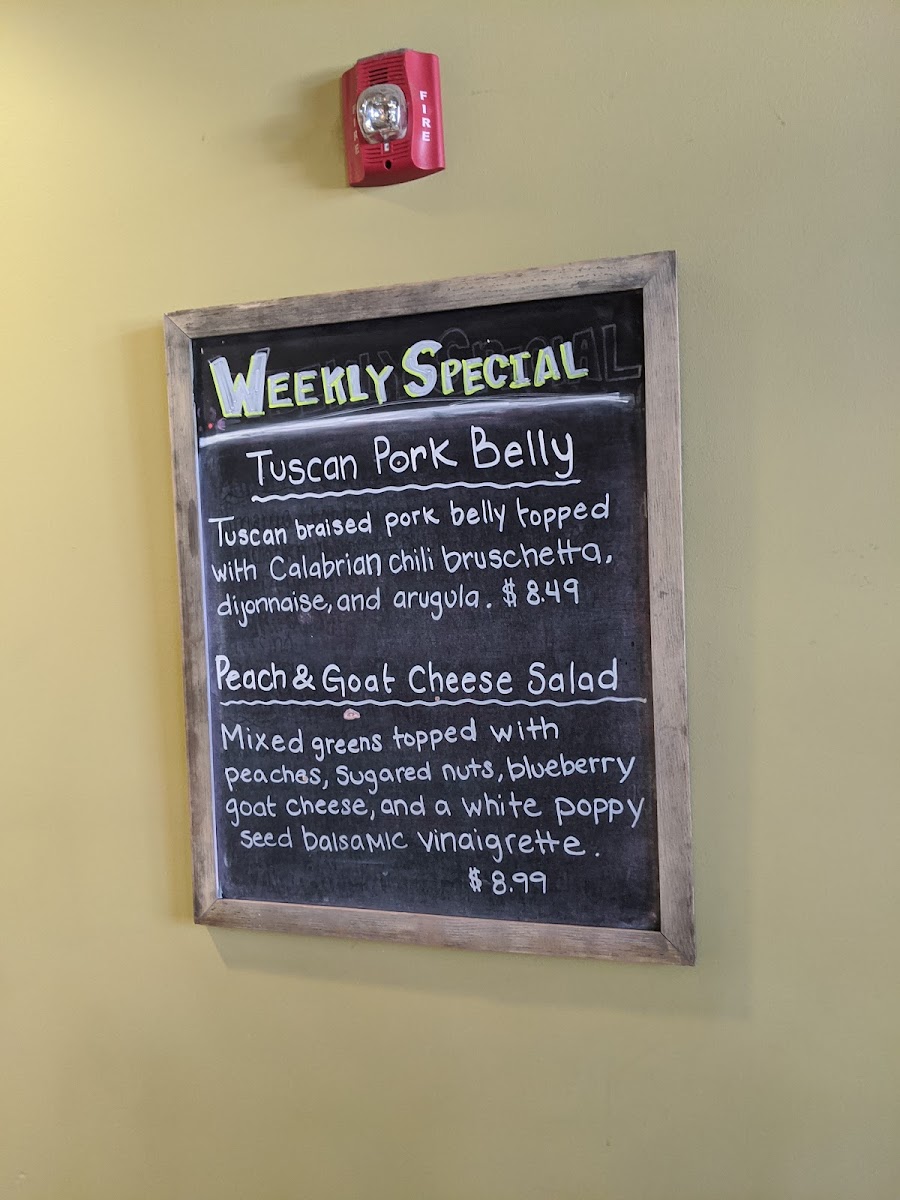 FIRE
WEEKLY SPECIAL
Tuscan Pork Belly
Tuscan braised pork belly topped
with Calabrian chili bruschetta,
dijonnaise, and arugula. $ 8.49
Peach & Goat Cheese Salad
Mixed greens topped with
peaches, sugared nuts, blueberry
goat cheese, and a white poppy
seed balsamic vinaigrette.
$ 8.99